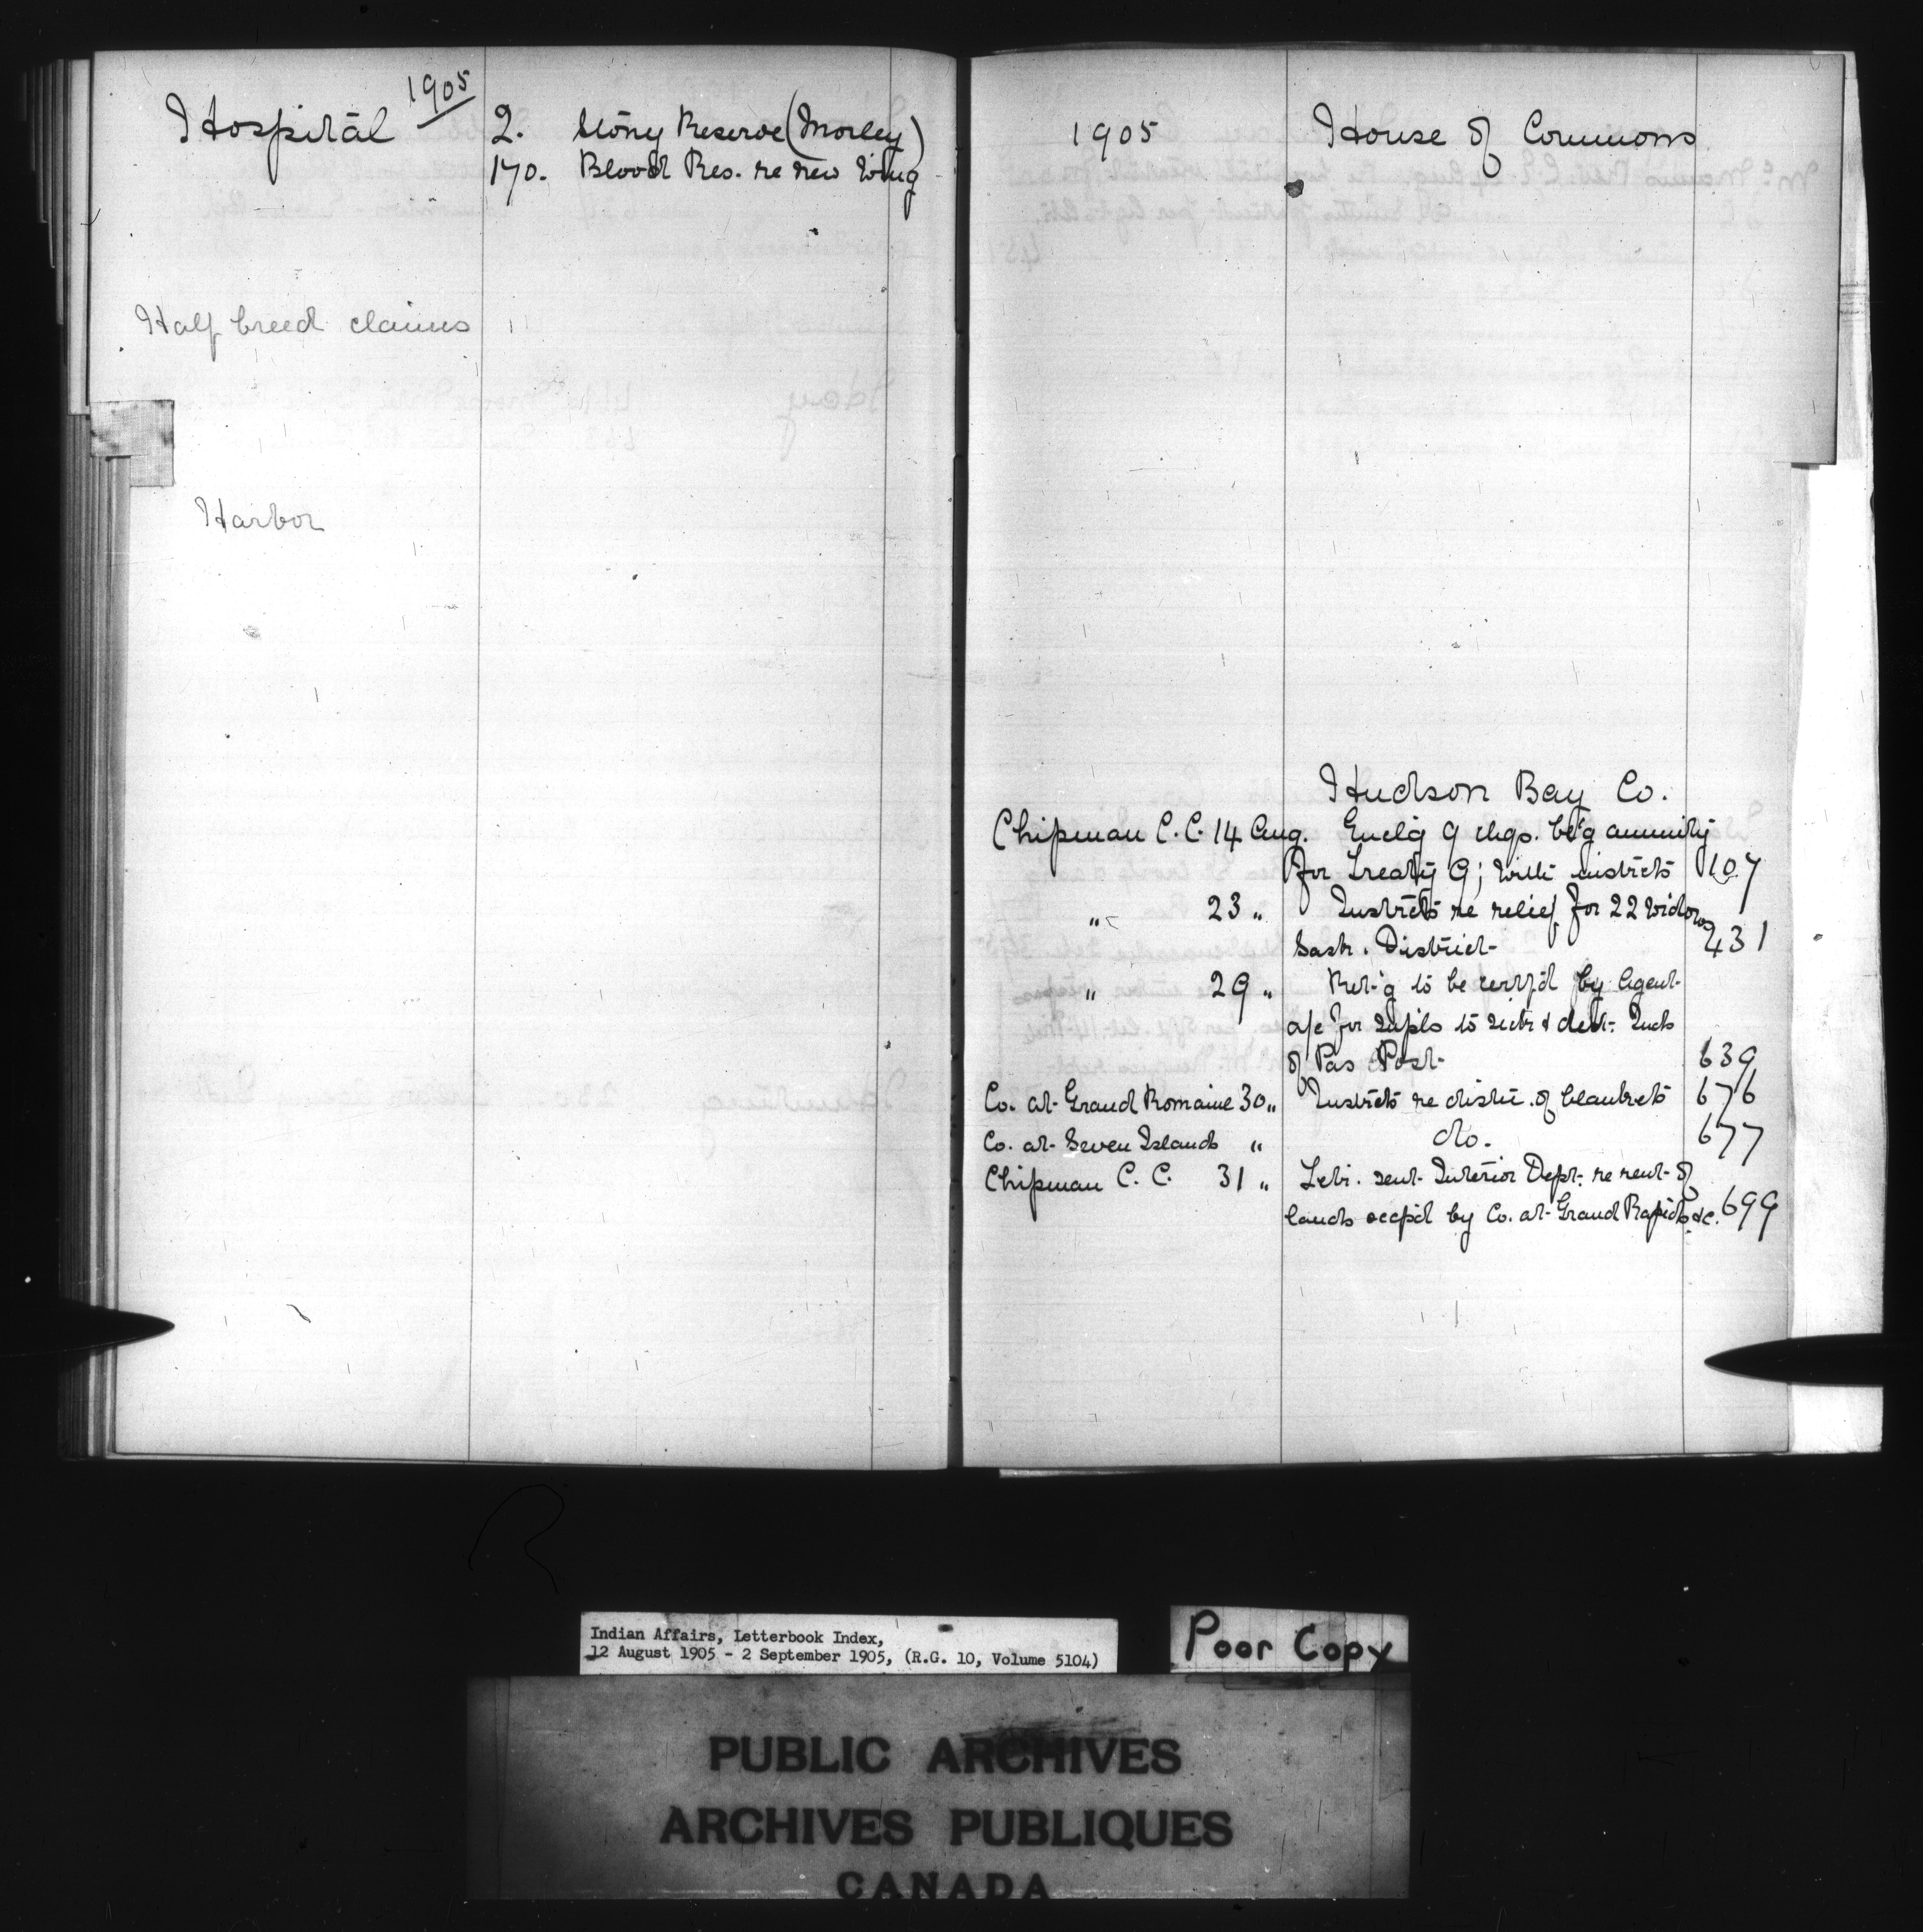 1905
Hospital 2. Stony Reserve (Morley)
170. Blood Res. re new wing
Half breed claims
Harbor
1905 House of Commons
Hudson Bay Co.
Chipman C.C. 14 Aug. Encl'g 9 chqs. be'g annuity
for Treaty 9; with instrcts 107
" 23 " Instrcts re relief for 22 widows
Sask. District 431
" 29 " Ret'g to be certf'd by Agent
a/c for supls to sick & dest. Inds
of Pas Post 639
Co. at Grand Romaine 30 " Instrcts re distr. of blankets 676
Co. at Seven Islands " do. 677
Chipman C. C. 31 " Letr. sent Interior Dept. re rent of
lands occp'd by Co. at Grand Rapids &c. 699
Indian Affairs, Letterbook Index,
12 August 1905 - 2 September 1905, (R.G. 10, Volume 5104)
Poor Copy
PUBLIC ARCHIVES
ARCHIVES PUBLIQUES
CANADA